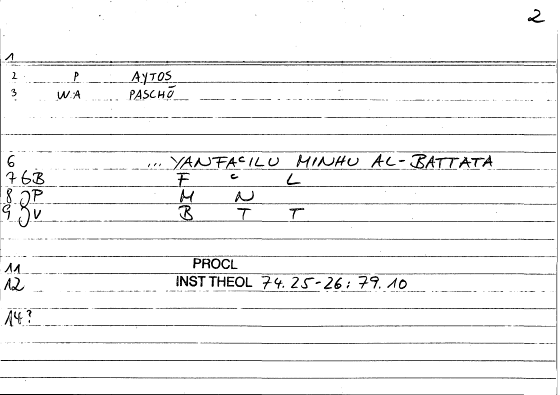 2
1
2 P AYTOS
3 W.A PASCHŌ
6 ... YANFAᶜILU MINHU AL-BATTATA
7 6B F ᶜ L
8 P M N
9 V B T T
11 PROCL
12 INST THEOL 74.25-26; 79.10
14?